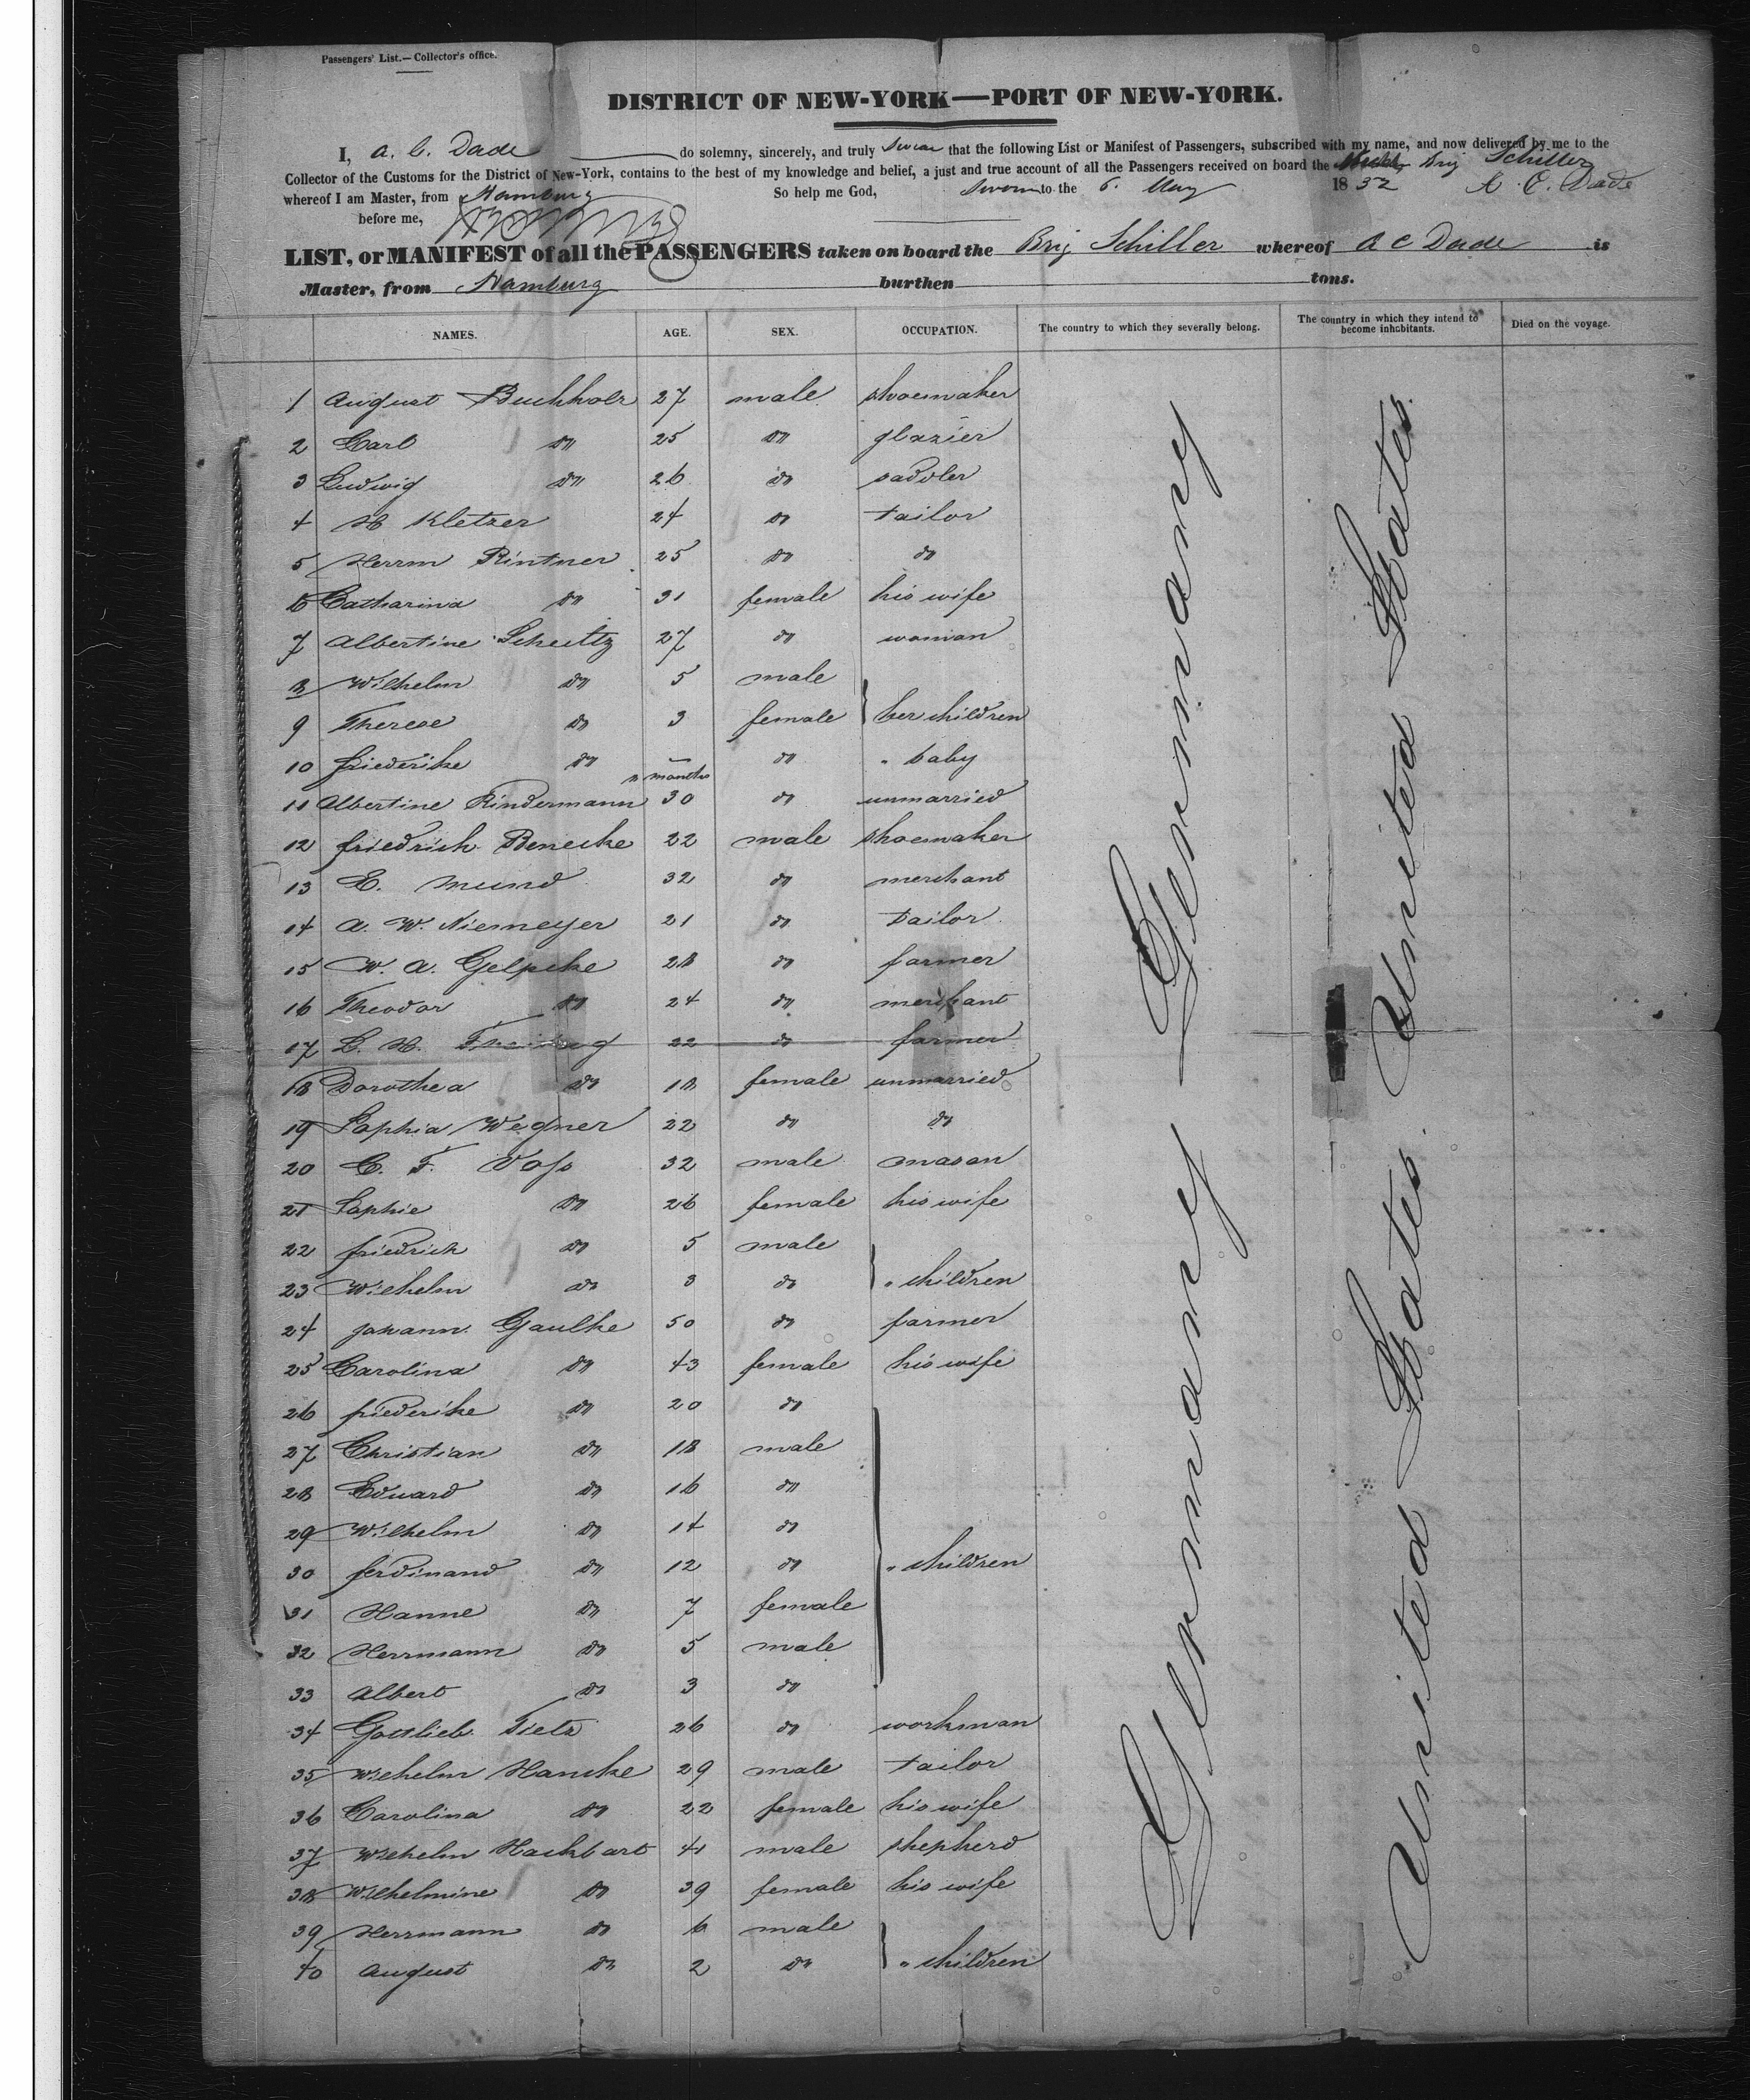 Passengers' List.— Collector's office.
DISTRICT OF NEW-YORK—PORT OF NEW-YORK.
I, A. C. Dade do solemny, sincerely, and truly swear that the following List or Manifest of Passengers, subscribed with my name, and now delivered by me to the
Collector of the Customs for the District of New-York, contains to the best of my knowledge and belief, a just and true account of all the Passengers received on board the Brig Schiller
whereof I am Master, from Hamburg So help me God, Sworn to the 6. May 1852 A. C. Dade
before me,
LIST, or MANIFEST of all the PASSENGERS taken on board the Brig Schiller whereof A C Dade is
Master, from Hamburg burthen tons.
NAMES. AGE. SEX. OCCUPATION. The country to which they severally belong. The country in which they intend to become inhabitants. Died on the voyage.
1 August Buchholz 27 male shoemaker
2 Carl do 25 do glazier
3 Ludwig do 26 do saddler
4 H Kletzer 24 do tailor
5 Herrm Rintner 25 do do
6 Catharina do 31 female his wife
7 Albertine Schultz 27 do woman
8 Wilhelm do 5 male
9 Therese do 3 female her children
10 Friederike do months do " baby
11 Albertine Rindermann 30 do unmarried
12 Friedrich Benecke 22 male shoemaker
13 E. Mund 32 do merchant
14 A. W. Niemeyer 21 do tailor
15 W. A. Gelpcke 28 do farmer
16 Theodor do 24 do merchant
17 L. H. 22 do farmer
18 Dorothea do 18 female unmarried
19 Sophia Wegner 22 do do
20 C. F. Voss 32 male mason
21 Sophie do 26 female his wife
22 Friedrich do 5 male
23 Wilhelm do 3 do " children
24 Johann Gaulke 50 do farmer
25 Carolina do 43 female his wife
26 Friederike do 20 do
27 Christian do 18 male
28 Eduard do 16 do
29 Wilhelm do 14 do
30 Ferdinand do 12 do " children
31 Hanne do 7 female
32 Herrmann do 5 male
33 Albert do 3 do
34 Gottlieb Tietz 26 do workman
35 Wilhelm Hancke 29 male tailor
36 Carolina do 22 female his wife
37 Wilhelm Hachbart 41 male shepherd
38 Wilhelmine do 39 female his wife
39 Herrmann do 6 male
40 August do 2 do " children
Germany Germany
United States United States